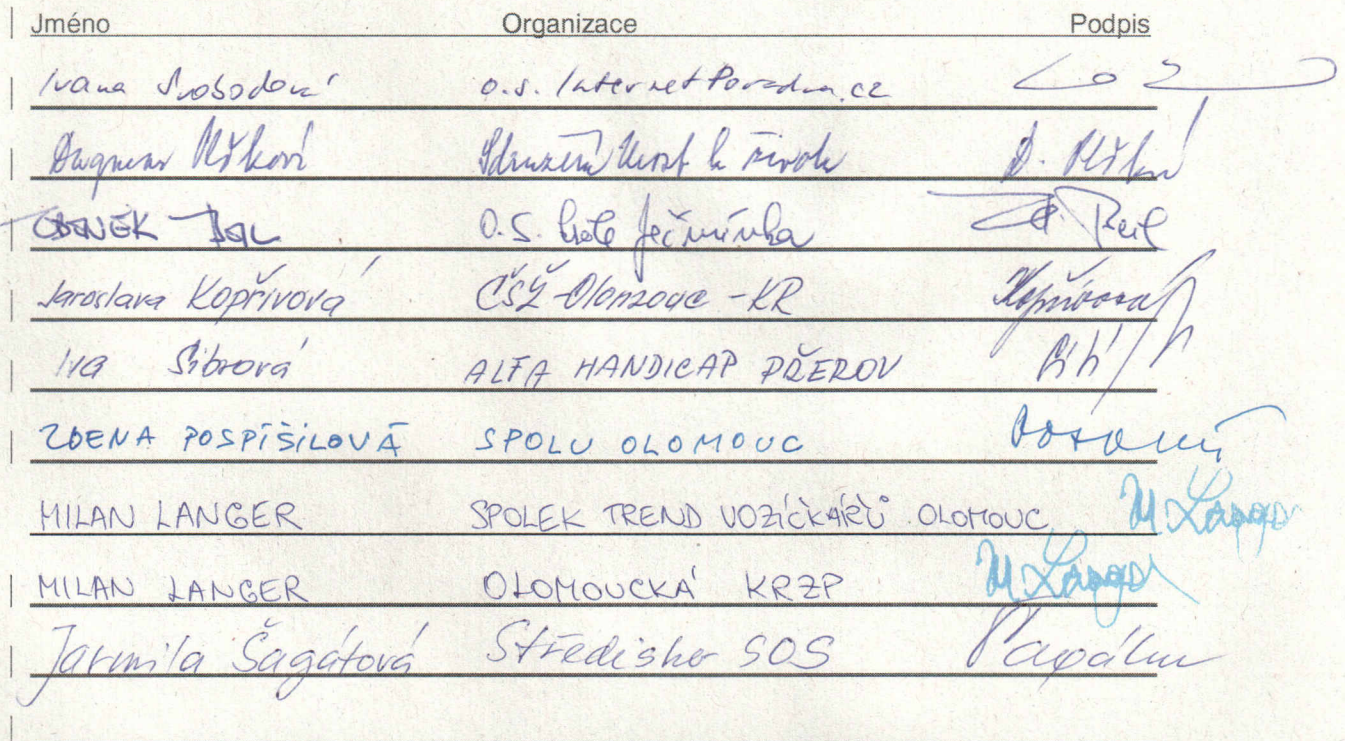 Jméno Organizace Podpis
Ivana Svobodová o.s. InternetPoradna.cz
Dagmar Sdružení Most k životu D.
O.S. Krále Ječmínka
Jaroslava Kopřivová ČSŽ-Olomouc-KR Kopřivová
Iva Sibrová ALFA HANDICAP PŘEROV
ZDENA POSPÍŠILOVÁ SPOLU OLOMOUC
MILAN LANGER SPOLEK TREND VOZÍČKÁŘŮ OLOMOUC M. Langer
MILAN LANGER OLOMOUCKÁ KRZP M. Langer
Jarmila Šagátová Středisko SOS